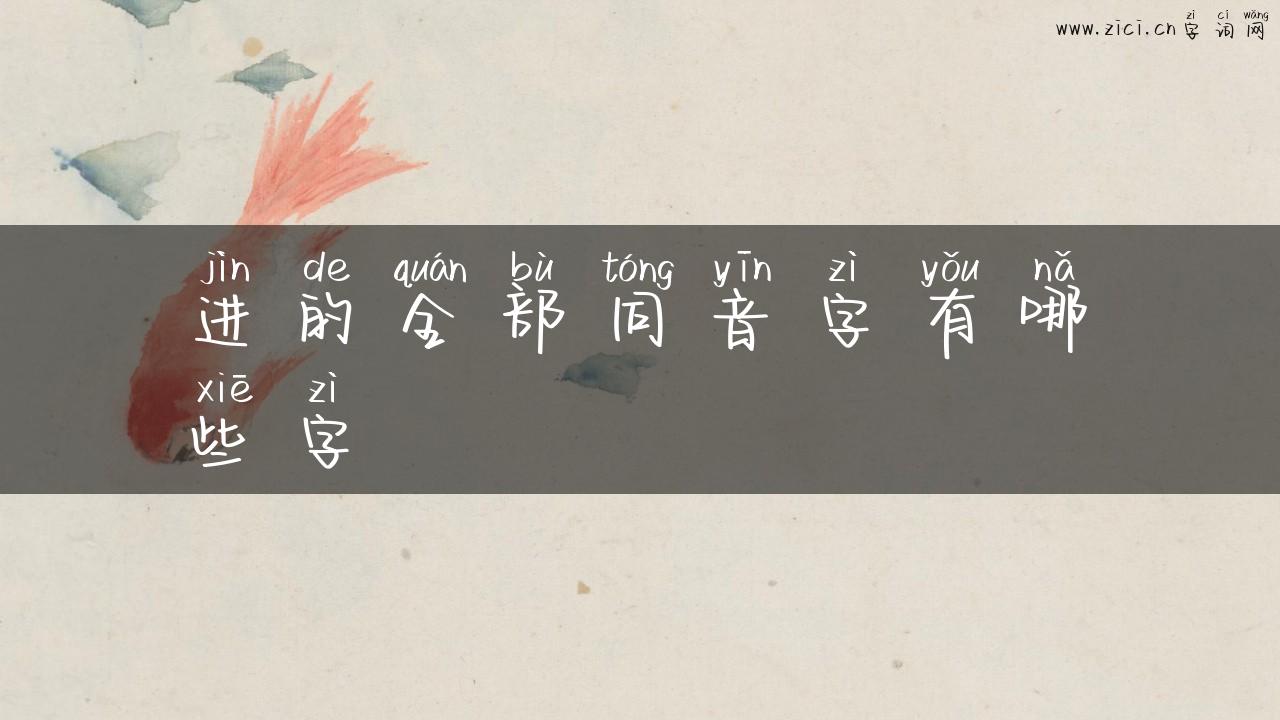 zì cí wǎng
www.zici.cn 字 词 网
jìn de quán bù tóng yīn zì yǒu nǎ
进 的 全 部 同 音 字 有 哪
xiē zì
些 字